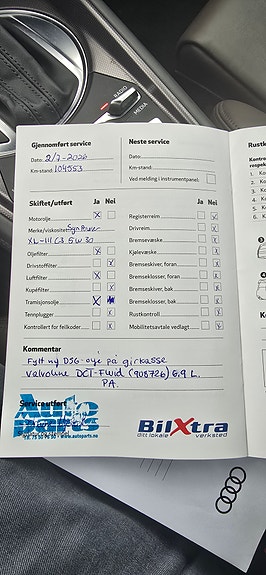 RADIO
MEDIA
Gjennomført service
Dato: 2/7-2026
Km-stand: 104553
Neste service
Dato:
Km-stand:
Ved melding i instrumentpanel:
Skiftet/utført Ja Nei
Motorolje X
Merke/viskositet: SynPower
XL-III C3 5W30
Oljefilter X
Drivstoffilter X
Luftfilter X
Kupéfilter X
Transmisjonsolje X
Tennplugger X
Kontrollert for feilkoder X
Ja Nei
Registerreim X
Drivreim X
Bremsevæske X
Kjølevæske X
Bremseskiver, foran X
Bremseskiver, bak X
Bremseklosser, foran X
Bremseklosser, bak X
Rustkontroll X
Mobilitetsavtale vedlagt X
Kommentar
Fylt ny DSG-olje på girkasse
Valvoline DCT-Fluid (908726) 6.9 L.
PA.
Service utført
Auto
parts
www.autoparts.no
BilXtra
ditt lokale verksted
Rustk
Kontro
respek
1. Ko
2. Ko
3. Ko
4. Ko
5. Ko
6. Ko